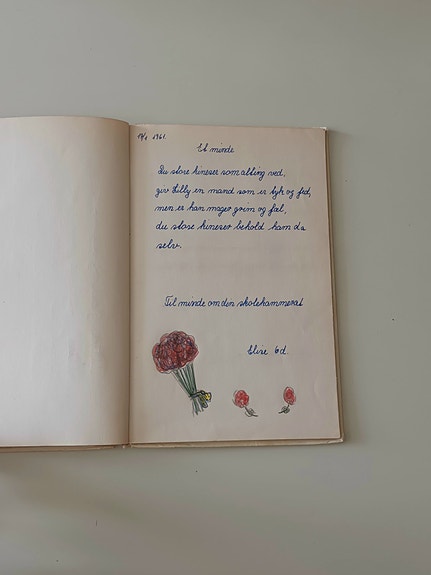 19/1 1961.
Et minde
Du store kineser som alting ved,
giv Lilly en mand som er tyk og fed,
men er han mager grim og fæl,
du store kineser behold ham da
selv.
Til minde om din skolekammerat
Elise 6d.